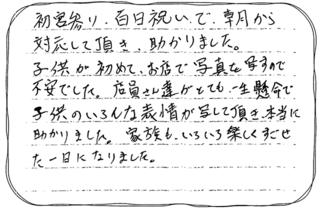 初宮参り、百日祝いで、朝月から
対応して頂き、助かりました。
子供が初めて、お店で写真を写すので
不安でした。店員さん達がとても一生懸命で
子供のいろんな表情が写して頂き、本当に
助かりました。家族も、いろいろ楽しくすごせ
た一日になりました。